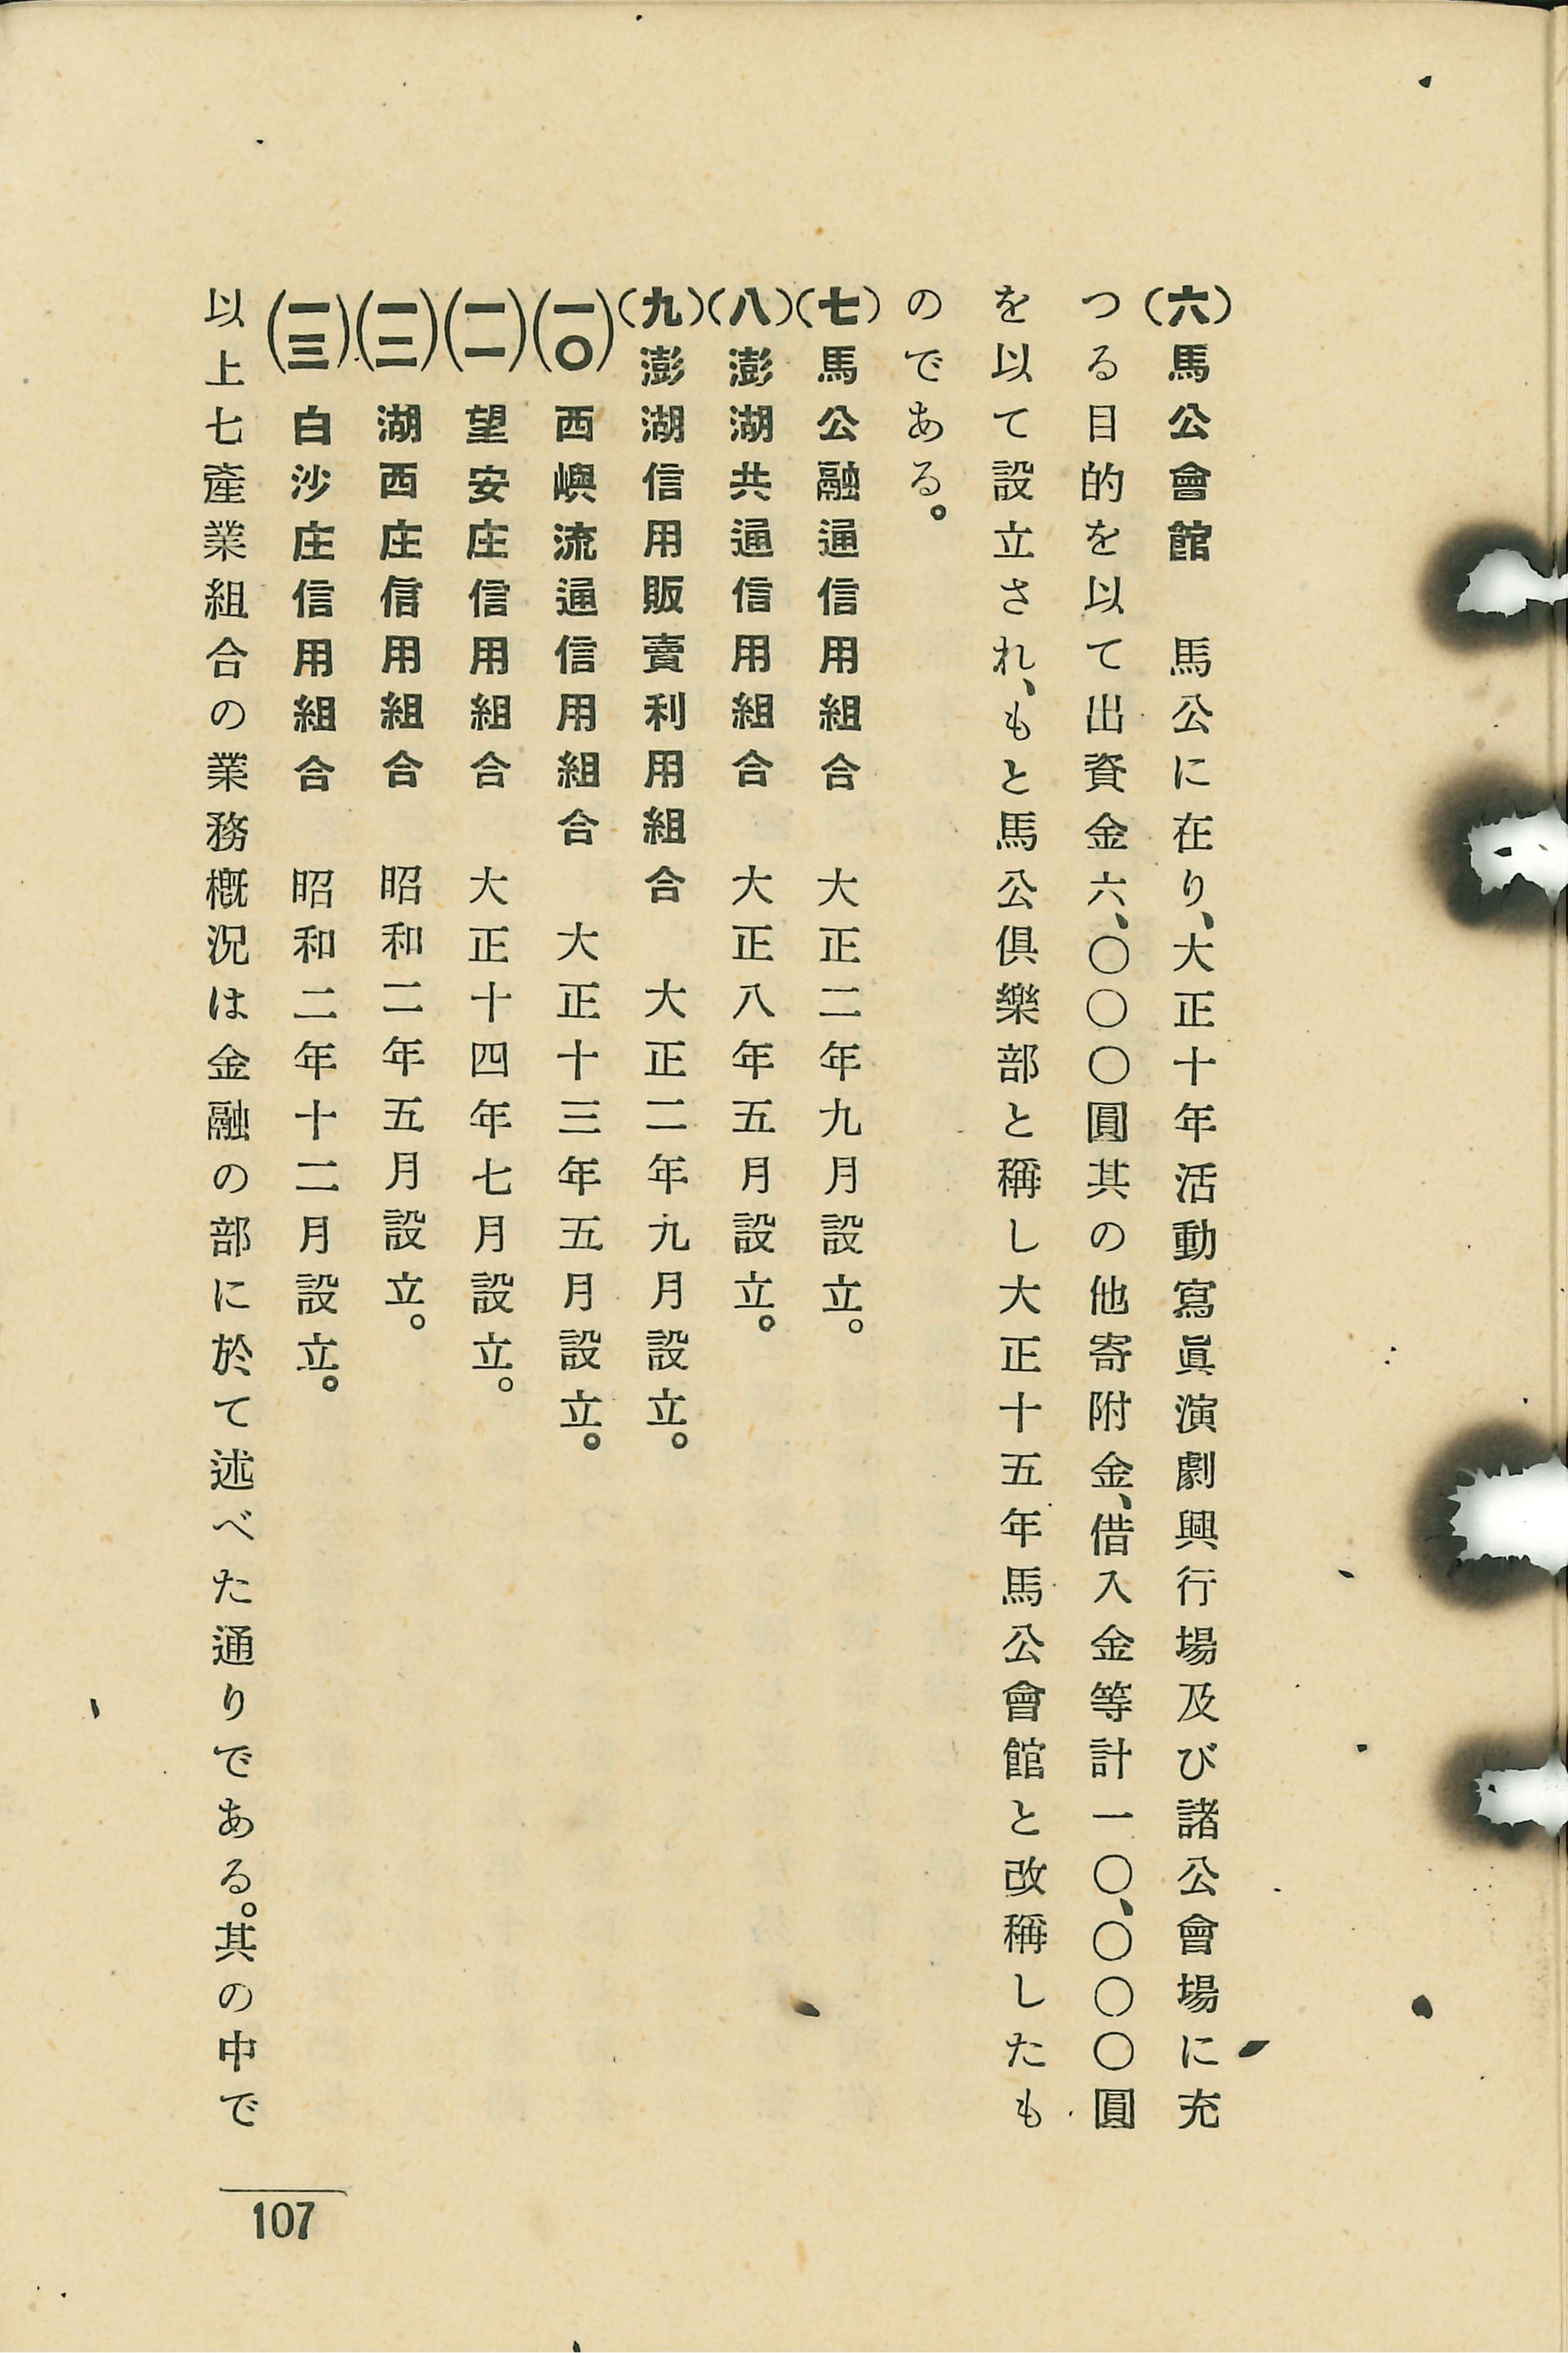 (六)馬公會館　馬公に在り、大正十年活動寫眞演劇興行場及び諸公會場に充
つる目的を以て出資金六、〇〇〇圓其の他寄附金、借入金等計一〇、〇〇〇圓
を以て設立され、もと馬公俱樂部と稱し大正十五年馬公會館と改稱したも
のである。
(七)馬公融通信用組合　大正二年九月設立。
(八)澎湖共通信用組合　大正八年五月設立。
(九)澎湖信用販賣利用組合　大正二年九月設立。
(一〇)西嶼流通信用組合　大正十三年五月設立。
(一一)望安庄信用組合　大正十四年七月設立。
(一二)湖西庄信用組合　昭和二年五月設立。
(一三)白沙庄信用組合　昭和二年十二月設立。
以上七產業組合の業務槪況は金融の部に於て述べた通りである。其の中で
107